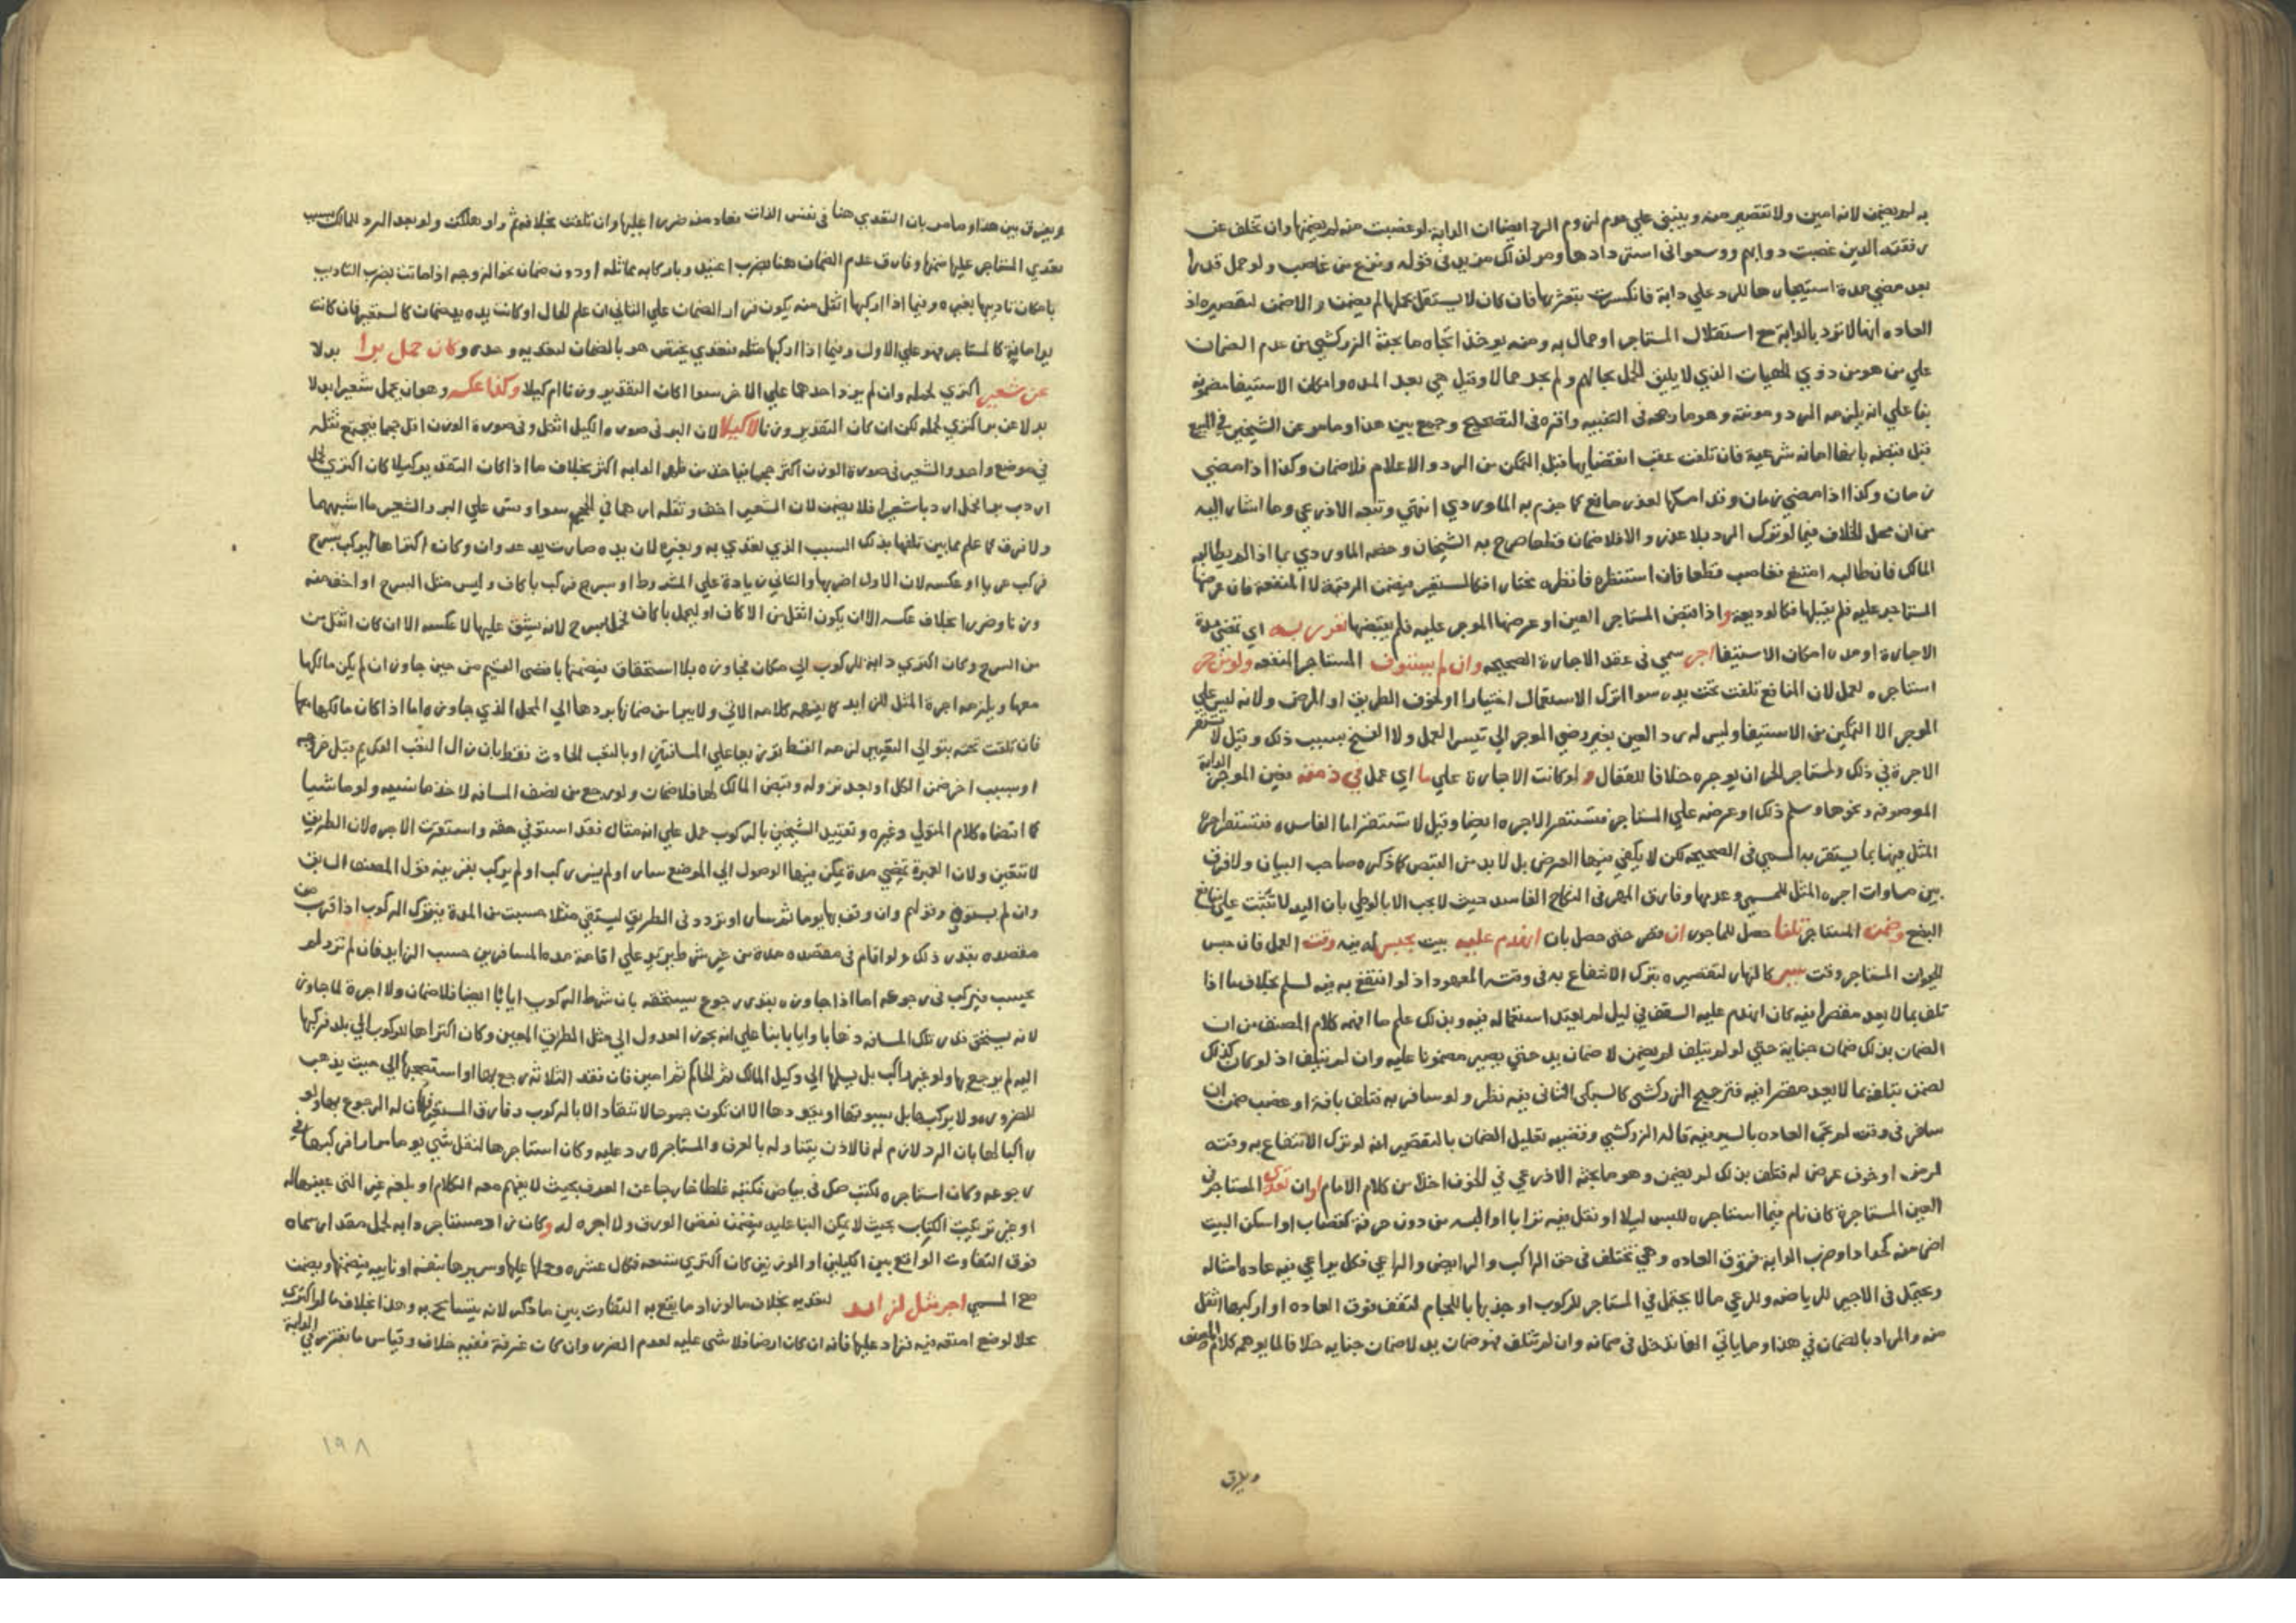 به لم يضمن لانه امين ولا تقصير منه وينبني علي عدم لزوم الرد ايضا ان الدابة لو غصبت منه لم يضمنها وان تخلف عن
رفقته الذين غصبت دوابهم ووسعوا في استردادها ومر لذلك مزيد في قوله وينزع من غاصب ولو حمل قدرا
بعد مضي مدة استيجارها للرد علي دابة فانكسرت بتعثرها فان كان لا يستقل بحملها لم يضمن والا ضمن لتقصيره اذ
العاده انها لا ترد بالدابة مع استقلال المستاجر او حمال به ومنه يوخذ اتجاه ما بحثه الزركشي من عدم الضمان
علي من هو من ذوي الهيات الذي لا يليق الحمل بحالهم ولم يجد حمالا وقيل هي بعد المده وامكان الاستيفا مضمونة
بنا علي انه يلزمه الرد ومونته وهو ما رجحه في التنبيه واقره في التصحيح وجمع بين هذا وما مر عن الشيخين في البيع
قبل قبضه بانها امانه شرعية فان تلفت عقب انقضايها قبل التمكن من الرد والاعلام فلا ضمان وكذا اذا مضي
زمان وكذا اذا مضي زمان وقد امسكها لعذر مانع كما جزم به الماوردي انتهي وتبعه الاذرعي وما اشار اليه
من ان محل الخلاف فيما لو ترك الرد بلا عذر والا فلا ضمان قطعا صرح به الشيخان وخصه الماوردي بما اذا لم يطالبه
المالك فان طالبه امتنع فغاصب قطعا فان استنظره فانظره مختارا فكالمستعير فيضمن الرقبة لا المنفعة فان عرضها
المستاجر عليه فلم يقبلها فكالوديعة واذا قبض المستاجر العين او عرضها الموجر عليه فلم يقبضها تقرر له اي تمضي مدة
الاجارة او مده امكان الاستيفا اجر سمي في عقد الاجارة الصحيحه وان لم يستوف المستاجر المنفعه ولو من حر
استاجره لعمل لان المنافع تلفت تحت يده سوا الترك الاستعمال اختيارا او لخوف الطريق او المرض ولانه ليس علي
الموجر الا التمكين من الاستيفا وليس له رد العين بغير رضي الموجر الي تيسر العمل ولا الفسخ بسبب ذلك وقيل لا تستقر
الاجرة في ذلك ولمستاجر الحر ان يوجره خلافا للقفال ولو كانت الاجارة علي ما اي عمل في ذمه بعين الموجر الدابة
الموصوفه ونحوها وسلم ذلك او عرضه علي المستاجر فتستقر الاجره ايضا وقيل لا تستقر اما الفاسده فتستقر اجرة
المثل فيها بما يستقر به المسمي في الصحيحه لكن لا يكفي فيها العرض بل لا بد من القبض كما ذكره صاحب البيان ولا فرق
بين مساوات اجره المثل للمسمي وعدمها وفارق المهر في النكاح الفاسد حيث لا يجب الا بالوطي بان اليد لا تثبت علي منافع
البضع وضمن المستاجر تلفا حصل للماجور ان قصر حتي حصل بان انهدم عليه بيت بحبس له فيه وقت العمل فان حبس
الحيوان المستاجر وقت سير كالنهار لتقصيره بترك الانتفاع به في وقته المعهود اذ لو انتفع به فيه لسلم بخلاف ما اذا
تلف بما لا يعد مقصرا فيه كان انهدم عليه السقف في ليل لم يعتد استعماله فيه وبذلك علم ما افهمه كلام المصنف من ان
الضمان بذلك ضمان جناية حتي لو لم يتلف لم يضمن لا ضمان يد حتي يصير مضمونا عليه وان لم يتلف اذ لو كان كذلك
لضمن بتلفه بما لا يعد مقصرا فيه فترجيح الزركشي كالسبكي الثاني فيه نظر ولو سافر به فتلف بافة او غصب ضمن ان
سافر في وقت لم تجر العاده بالسير فيه قاله الزركشي وقضيه تعليل الضمان بالتقصير انه لو ترك الانتفاع به وقته
لمرض او خوف عرض له فتلف بذلك لم يضمن وهو ما بحثه الاذرعي في الخوف اخذا من كلام الامام او ان تعدي المستاجر في
العين المستاجرة كان نام فيما استاجره للبس ليلا او نقل فيه ترابا او البسه من دون حرفة كقصاب او اسكن البيت
اضر منه كحداد او ضرب الدابة فوق العاده وهي تختلف في حق الراكب والرايض والراعي فكل يراعي فيه عادة امثاله
ويحتمل في الاجير للرياضه وللرعي ما لا يحتمل في المستاجر للركوب او جذبها باللجام لتقف فوق العاده او اركبها اثقل
منه والمراد بالضمان في هذا وما ياتي انها تدخل في ضمانه وان لم تتلف فهو ضمان يد لا ضمان جنايه خلافا لما يوهمه كلام المصنف
ويفرق
ويفرق بين هذا وما مر بان التعدي هنا في نفس الذات فعاد منه ضررا عليها وان تلفت بخلافه ثم ولو هلكت ولو بعد الرد للمالك بسبب
تعدي المستاجر عليها ضمنها وفارق عدم الضمان هنا بضرب اعتيد وباركابه مماثله او دونه ضمان نحو الزوجه اذا ماتت بضرب التاديب
بامكان تاديبها بغيره وفيما اذا اركبها اثقل منه يكون قرار الضمان علي الثاني ان علم الحال او كانت يده يد ضمان كالمستعير فان كانت
يد امانة كالمستاجر فهو علي الاول وفيما اذا اركبها مثله فتعدي يختص هو بالضمان لتعديه وحده وكان حمل برا بدلا
عن شعير اكتري لحمله وان لم يزد احدهما علي الاخر سوا كان التقدير وزنا ام كيلا وكذا عكسه وهو ان يحمل شعيرا بدلا
بدلا عن بر اكتري لحمله لكن ان كان التقدير وزنا لا كيلا لان البر في صورة الكيل اثقل وفي صورة الوزن اقل حجما فيجتمع ثقله
في موضع واحد والشعير في صورة الوزن اكثر حجما فياخذ من ظهر الدابه اكثر بخلاف ما اذا كان التقدير كيلا كان اكتري لحمل
اردب بر فحمل اردبا شعيرا فلا يضمن لان الشعير اخف وثقله اذ هما في الحجم سوا وقس علي البر والشعير ما اشبههما
ولا فرق كما علم مما بين تلفها بذلك السبب الذي تعدي به وبغيره لان يده صارت يد عدوان وكان اكتراها ليركب بسرج
فركب عريا او عكسه لان الاول اضر بها والثاني زيادة علي المشروط او بسرج فركب باكاف وليس مثل السرج او اخف منه
وزنا وضررا بخلاف عكسه الا ان يكون اثقل من الاكاف او ليحمل باكاف فحمل بسرج لانه يشق عليها لا عكسه الا ان كان اثقل من
من السرج وكان اكتري دابة للركوب الي مكان فجاوزه بلا استحقاق فيضمنها باقصى القيم من حين جاوز ان لم يكن مالكها
معها ويلزمه اجرة المثل للزايد كما يفهمه كلامه الاتي ولا يبرا من ضمانها بردها الي المحل الذي جاوزه اما اذا كان مالكها معها
فان تلفت تحته بتوالي التعبين لزمه القسط توزيعا علي المسافتين او بالتعب الحادث فقط بان زال التعب القديم قبل خروجه
او بسبب اخر ضمن الكل او بعد نزوله وقبض المالك لها فلا ضمان ولو رجع من نصف المسافه لاخذ ما نسيه ولو ماشيا
كما اقتضاه كلام المتولي وغيره وتقييد الشيخين بالركوب حمل علي انه مثال فقد استوفي حقه واستقرت الاجره لان الطريق
لا تتعين ولان العبرة بمضي مدة يمكن فيها الوصول الي الموضع سار او لم يسر ركب او لم يركب بقرينه قول المصنف السابق
وان لم يستوف وقولهم وان وقف بها يوما ثم سار او تردد في الطريق ليستقي مثلا حسبت من المدة فيترك الركوب اذا قرب من
مقصده بقدر ذلك ولو اقام في مقصده مدة من غير شرط يزيد علي اقامة مده المسافرين حسب الزايد فان لم تزد لم
يحسب فيركب في رجوعه اما اذا جاوزه بقدر رجوع يستحقه بان شرط الركوب ايابا ايضا فلا ضمان ولا اجرة لما جاوز
لانه يستحق قدر تلك المسافه ذهابا وايابا بنا علي انه يجوز العدول الي مثل الطريق المعين وكان اكتراها للركوب الي بلد فركبها
اليه لم يرجع بها ولو غير راكب بل يسلمها الي وكيل المالك ثم الحاكم ثم امين فان فقد الثلاثة رجع بها او استصحبها الي حيث يذهب
للضروره ولا يركبها بل يسوقها او يقودها الا ان تكون جموحا لا تنقاد الا بالركوب وفارق المستعير فان له الرجوع بها ولو
راكبا لها بان الرد لازم له فالاذن يتناوله بالعرف والمستاجر لا رد عليه وكان استاجرها لنقل شي يوما مرارا فركبها في
رجوعه وكان استاجره لكتب صك في بياض فكتبه غلطا خارجا عن العرف بحيث لا يفهم معه الكلام او بلغه غير التي عينها له
او غير ترتيب الكتاب بحيث لا يمكن البنا عليه فيضمن نقص الورق ولا اجره له وكان زاد مستاجر دابه لحمل مقدار سماه
فوق التفاوت الواقع بين الكيلين او الوزنين كان اكتري تسعه فكال عشره وحملها عليها وسيرها بنفسه او نايبه فيضمنها ويضمن
مع المسمي اجر مثل لزايد لتعديه بخلاف ما لو زاد ما يقع به التفاوت بين ما ذكر لانه يتسامح به وهذا بخلاف ما لو اكتري
محلا لوضع امتعه فيه فزاد عليها فانه ان كان ارضا فلا شي عليه لعدم الضرر وان كان غرفة ففيه خلاف وقياس ما تقرر في الدابة
١٩٨